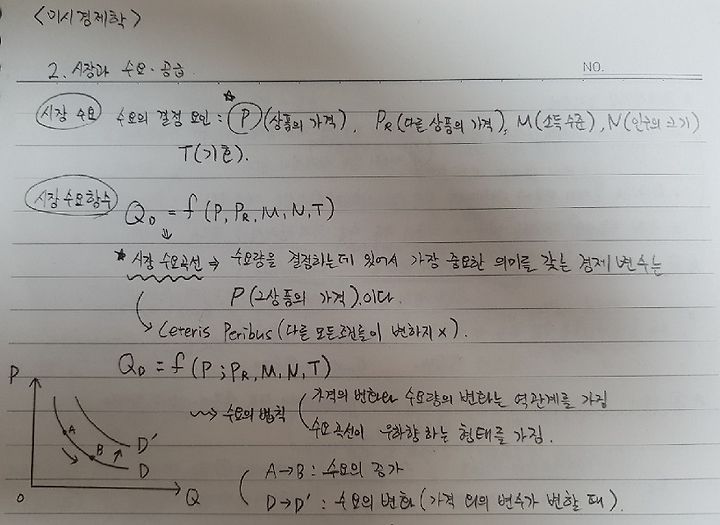 <미시경제학>
2. 시장과 수요·공급
NO.
시장 수요 수요의 결정 요인 : ★P(상품의 가격), PR(다른 상품의 가격), M(소득수준), N(인구의 크기)
T(기호).
시장 수요함수 QD = f(P, PR, M, N, T)
★ 시장 수요곡선 ⇒ 수요량을 결정하는데 있어서 가장 중요한 의미를 갖는 경제 변수는
P(그상품의 가격).이다.
Ceteris Peribus (다른 모든조건들이 변하지 x).
QD = f(P ; PR, M, N, T)
수요의 법칙
가격의 변화와 수요량의 변화는 역관계를 가짐
수요곡선이 우하향하는 형태를 가짐.
P
A
B
D'
D
O
Q
A→B : 수요의 증가
D→D' : 수요의 변화 (가격 외의 변수가 변할 때).